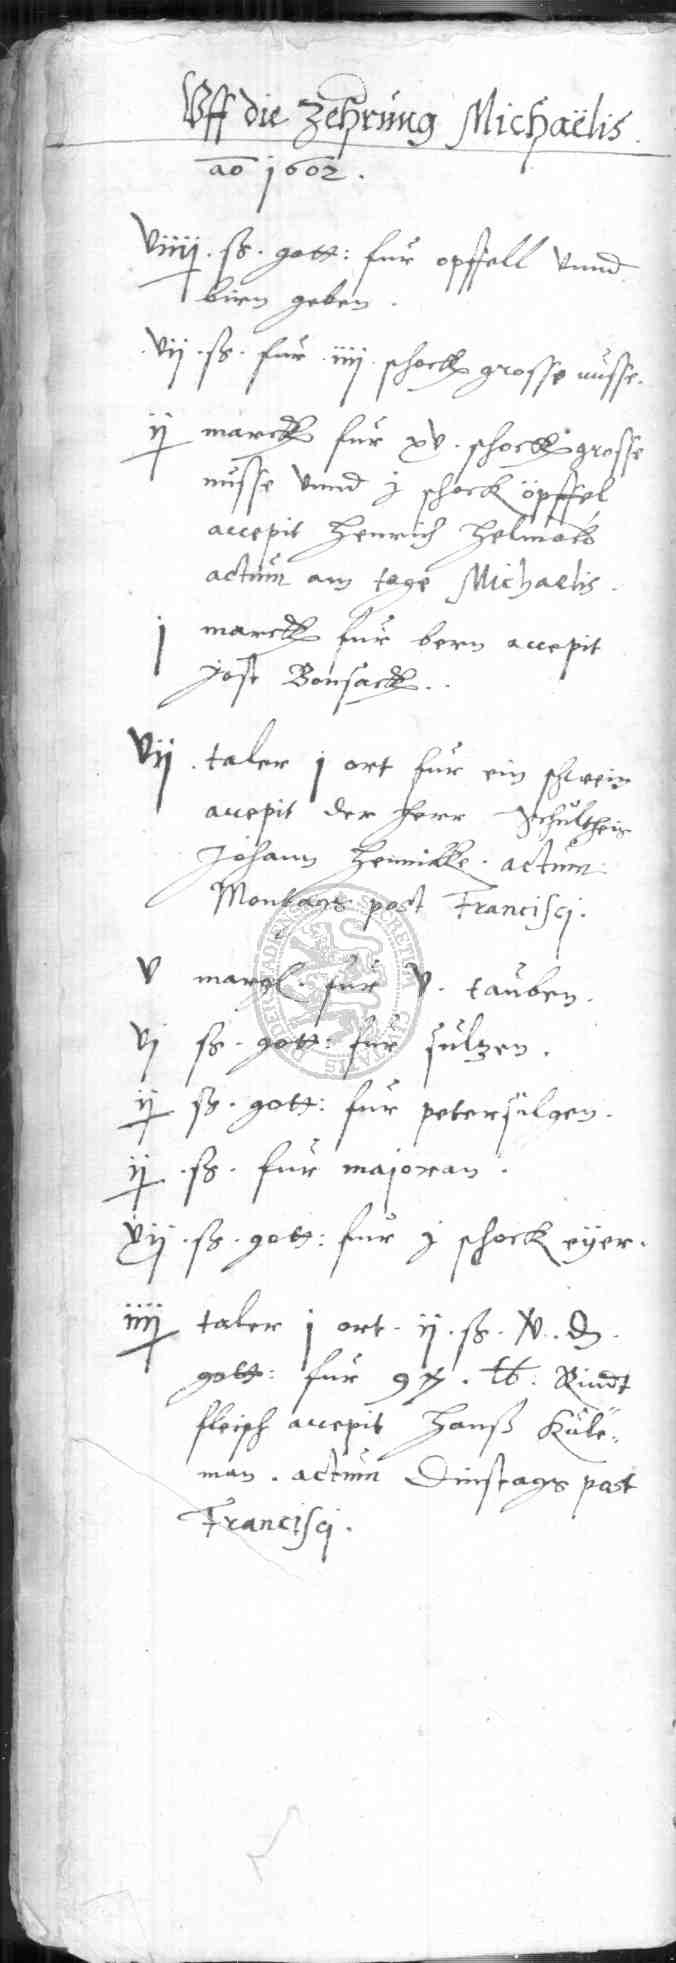 Vff die Zehrung Michaëlis.
ao 1602.
viiij. ß. gott: fur opffell vnnd
birn geben.
vij. ß. fur iiij. schock grosse nusse.
ij marck fur xv. schock grosse
nusse vnnd j schock öpffel
accepit Henrich
actum am tage Michaelis.
j marck fur bern accepit
Jost Bonsack.
vij. taler j ort fur ein schwein
accepit der Herr Schultheis
Johann actum
Montags post Francisci.
v fur v. tauben.
vj ß. gott: fur sultzen.
ij ß. gott: fur petersilgen.
ij. ß. fur majoran.
vij. ß. gott: fur j schock eÿer.
iiij taler j ort. ij. ß. v. d.
gott: fur lb. Rindt
fleisch accepit Hanß Küle=
man. actum Dinstags post
Francisci.
DUDERSTADENSIS SECRETUM CIVITATIS